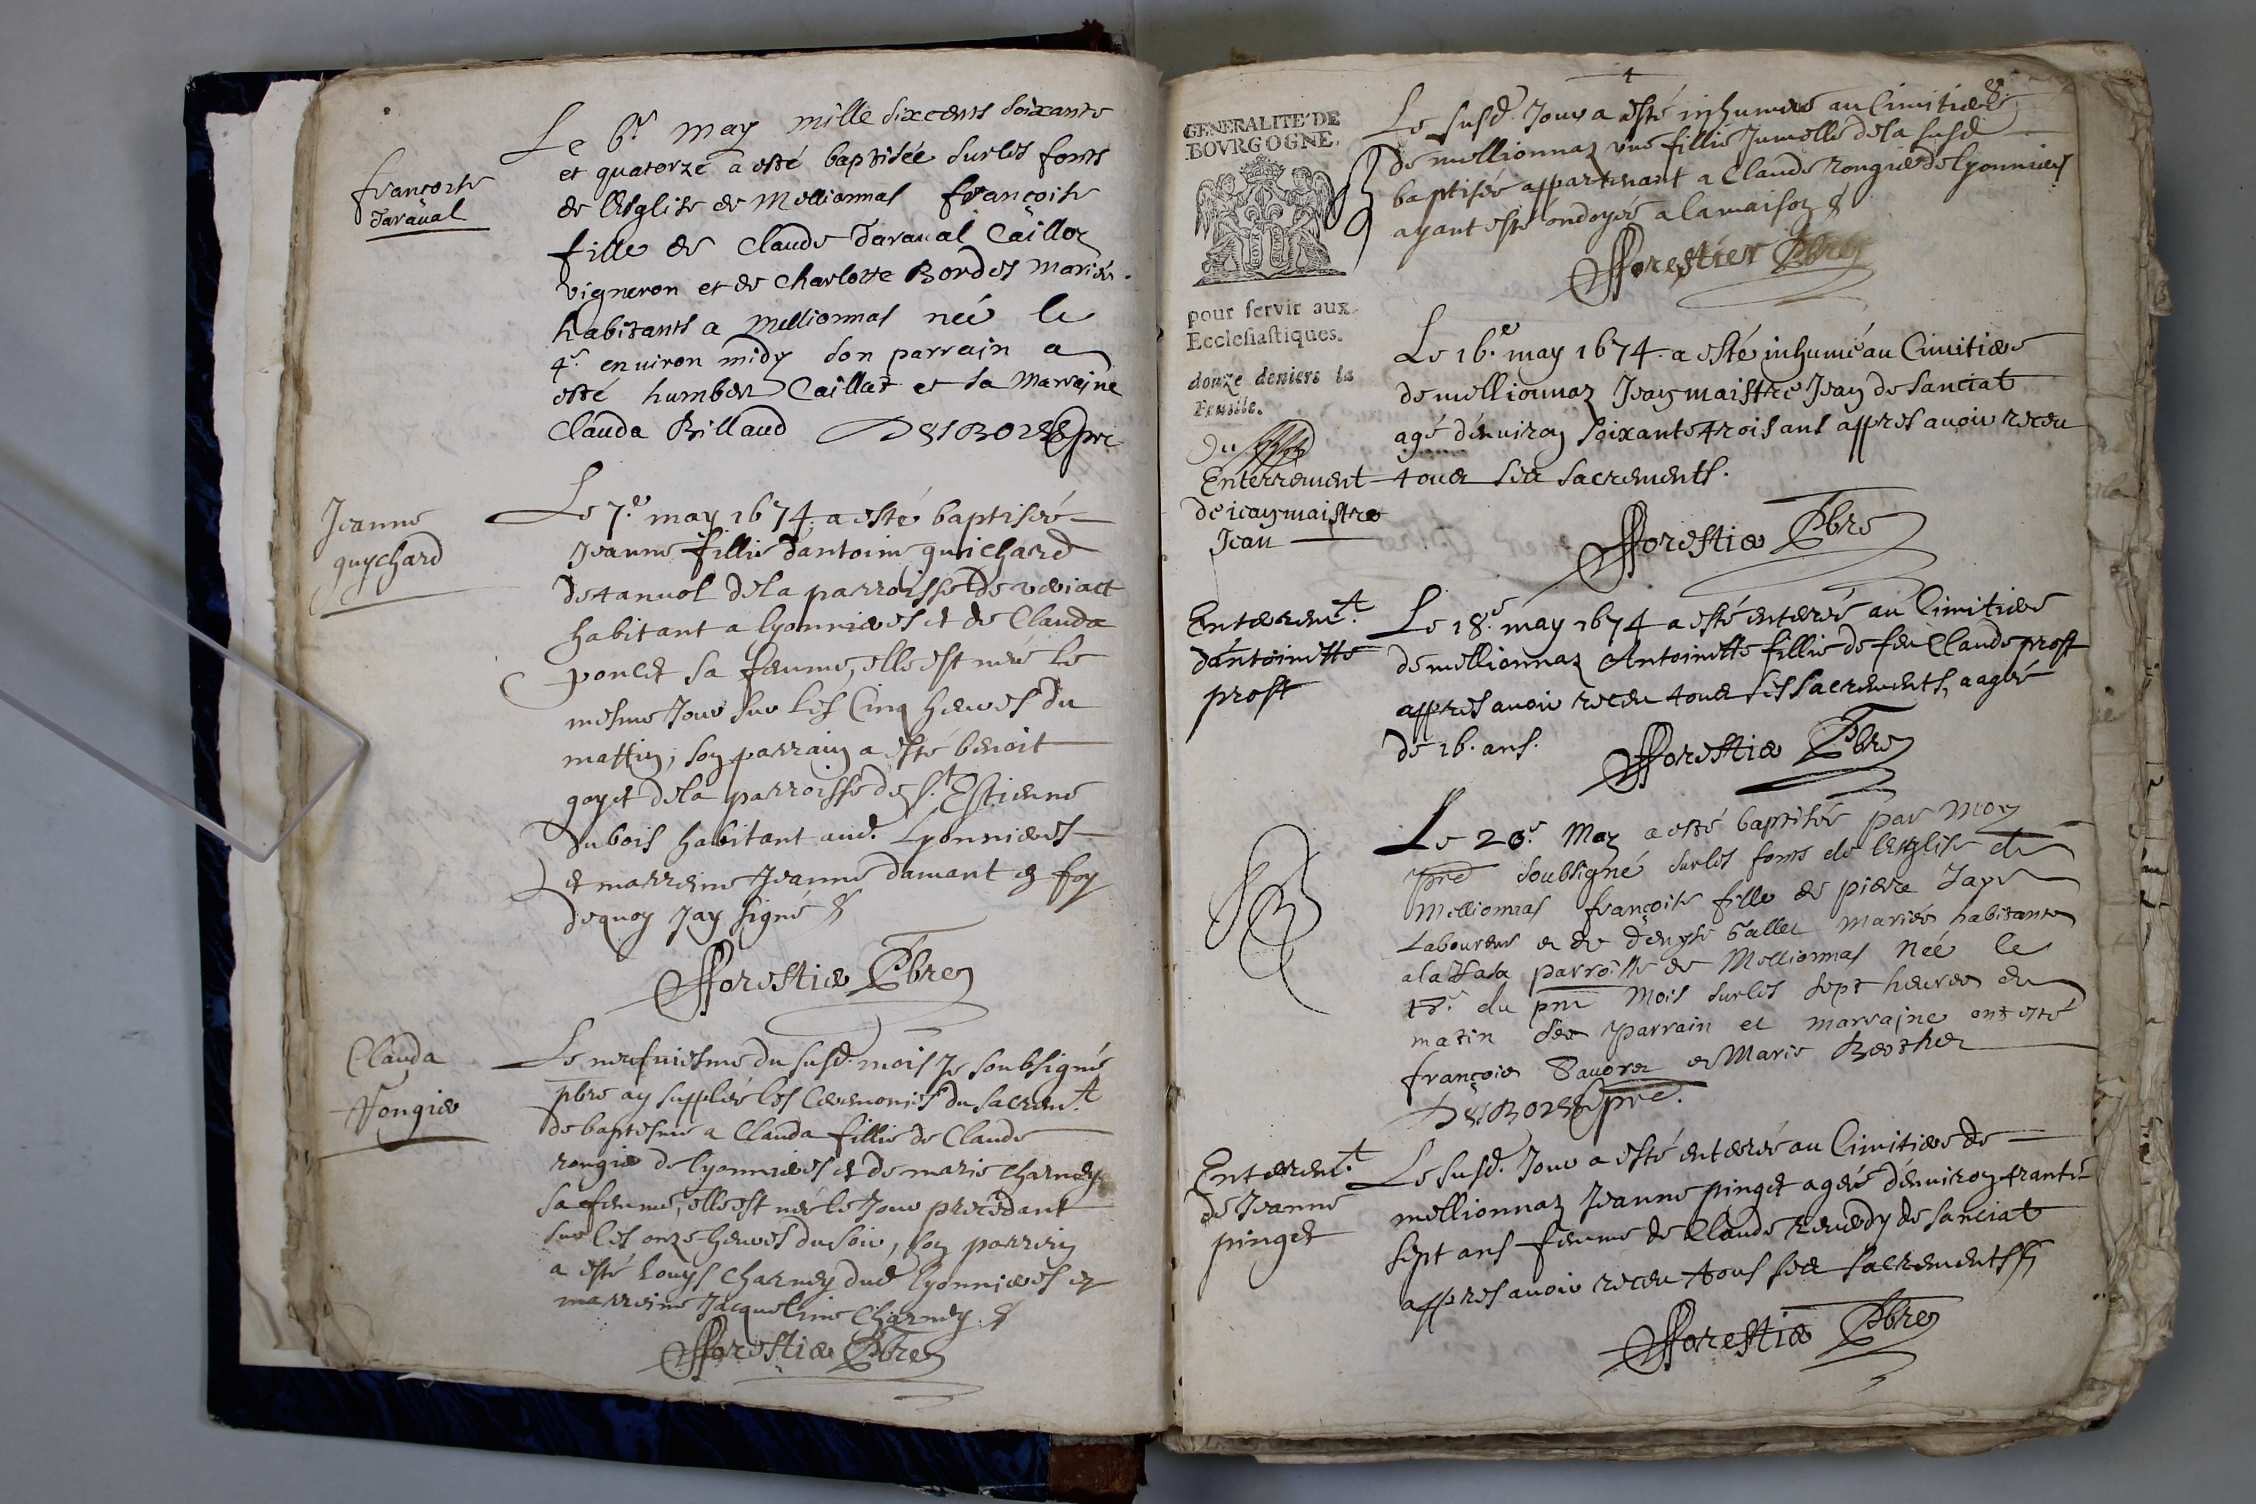 françoise
Taraual
Le 6e May mille sixcents soixante
et quatorze a esté baptisée sur les fonts
de l'esglise de Mellionnas françoise
fille de Claude Taraual Caillon
vigneron et de Charlotte Bordes mariés
habitants a Mellionnas née le
4e. enuiron midy son parrain a
esté humber Caillat et sa Marrajne
Clauda Billaud DesBordes pre
Jeanne
guychard
Le 7e. may 1674. a esté baptisée
Jeanne fillie dantoine guichard
de tanuol dela parroisse de veriact
habitant a lyonnieres et de Clauda
poncet sa femme, elle est née le
mesme Jour sur les Cinq heures du
mattin, son parrain a esté benoit
goyet dela parroisse de St. Estienne
dubois habitant aud. Lyonnieres
et marreine Jeanne damant en foy
dequoy Jay signé
fforestier Pbre
Clauda
Rongier
Le neufuiesme du susd. mois Je soubsigné
pbre ay supplée les Ceremonies du Sacremt.
de baptesme a Clauda fillie de Claude
rongier de lyonnieres et de marie Charney
sa femme, elle est née le Jour precedant
sur les onze heures du soir, son parrein
a esté Louys Charney dud lyonnieres et
marreine Jacqueline Charney
fforestier Pbre
GENERALITE' DE
BOVRGOGNE.
pour servir aux
Ecclesiastiques.
donze deniers la
Feuille.
4
Le susd. Jour a esté inhumée au Cimitiere
de mellionnaz vne fillie Jumelle dela susd
baptisée appartenant a Claude rongier de lyonnieres
ayant esté endoyée a la maison
fforestier Pbre
Du
Enterrement
de ieaymaistre
Jean
Le 16e. may 1674. a esté inhumé au Cimitiere
de mellionnaz Jean maistre Jean de Sanciat
agé denuiron soixante trois ans appres auoir receu
tous ses sacrements.
fforestier Pbre
Enteremt.
dantoinette
prost
Le 18e. may 1674 a esté enterrée au Cimitiere
de mellionnaz Antoinette fillie de feu Claude prost
appres auoir receu tous ses sacrements, aagée
de 16. ans.
fforestier Pbre
Le 20e. May a esté baptisée par Moy
pre soubsigné sur les fonts de l'esglise de
Mellionnas françoise fille de piere
Laboureur et de denyse Gallet mariés habitants
parroisse de Mellionnas Née le
18e. du pnt Mois sur les sept heures du
matin ses parrain et marrajne ont esté
françois et Marie Berthet
DesBordes pre.
Enteremt.
de Jeanne
pinget
Le susd. Jour a esté enterrée au Cimitiere de
mellionnaz Jeanne pinget agée denuiron trante
sept ans femme de Claude remedy de Sanciat
appres auoir receu tous ses sacrements
fforestier Pbre